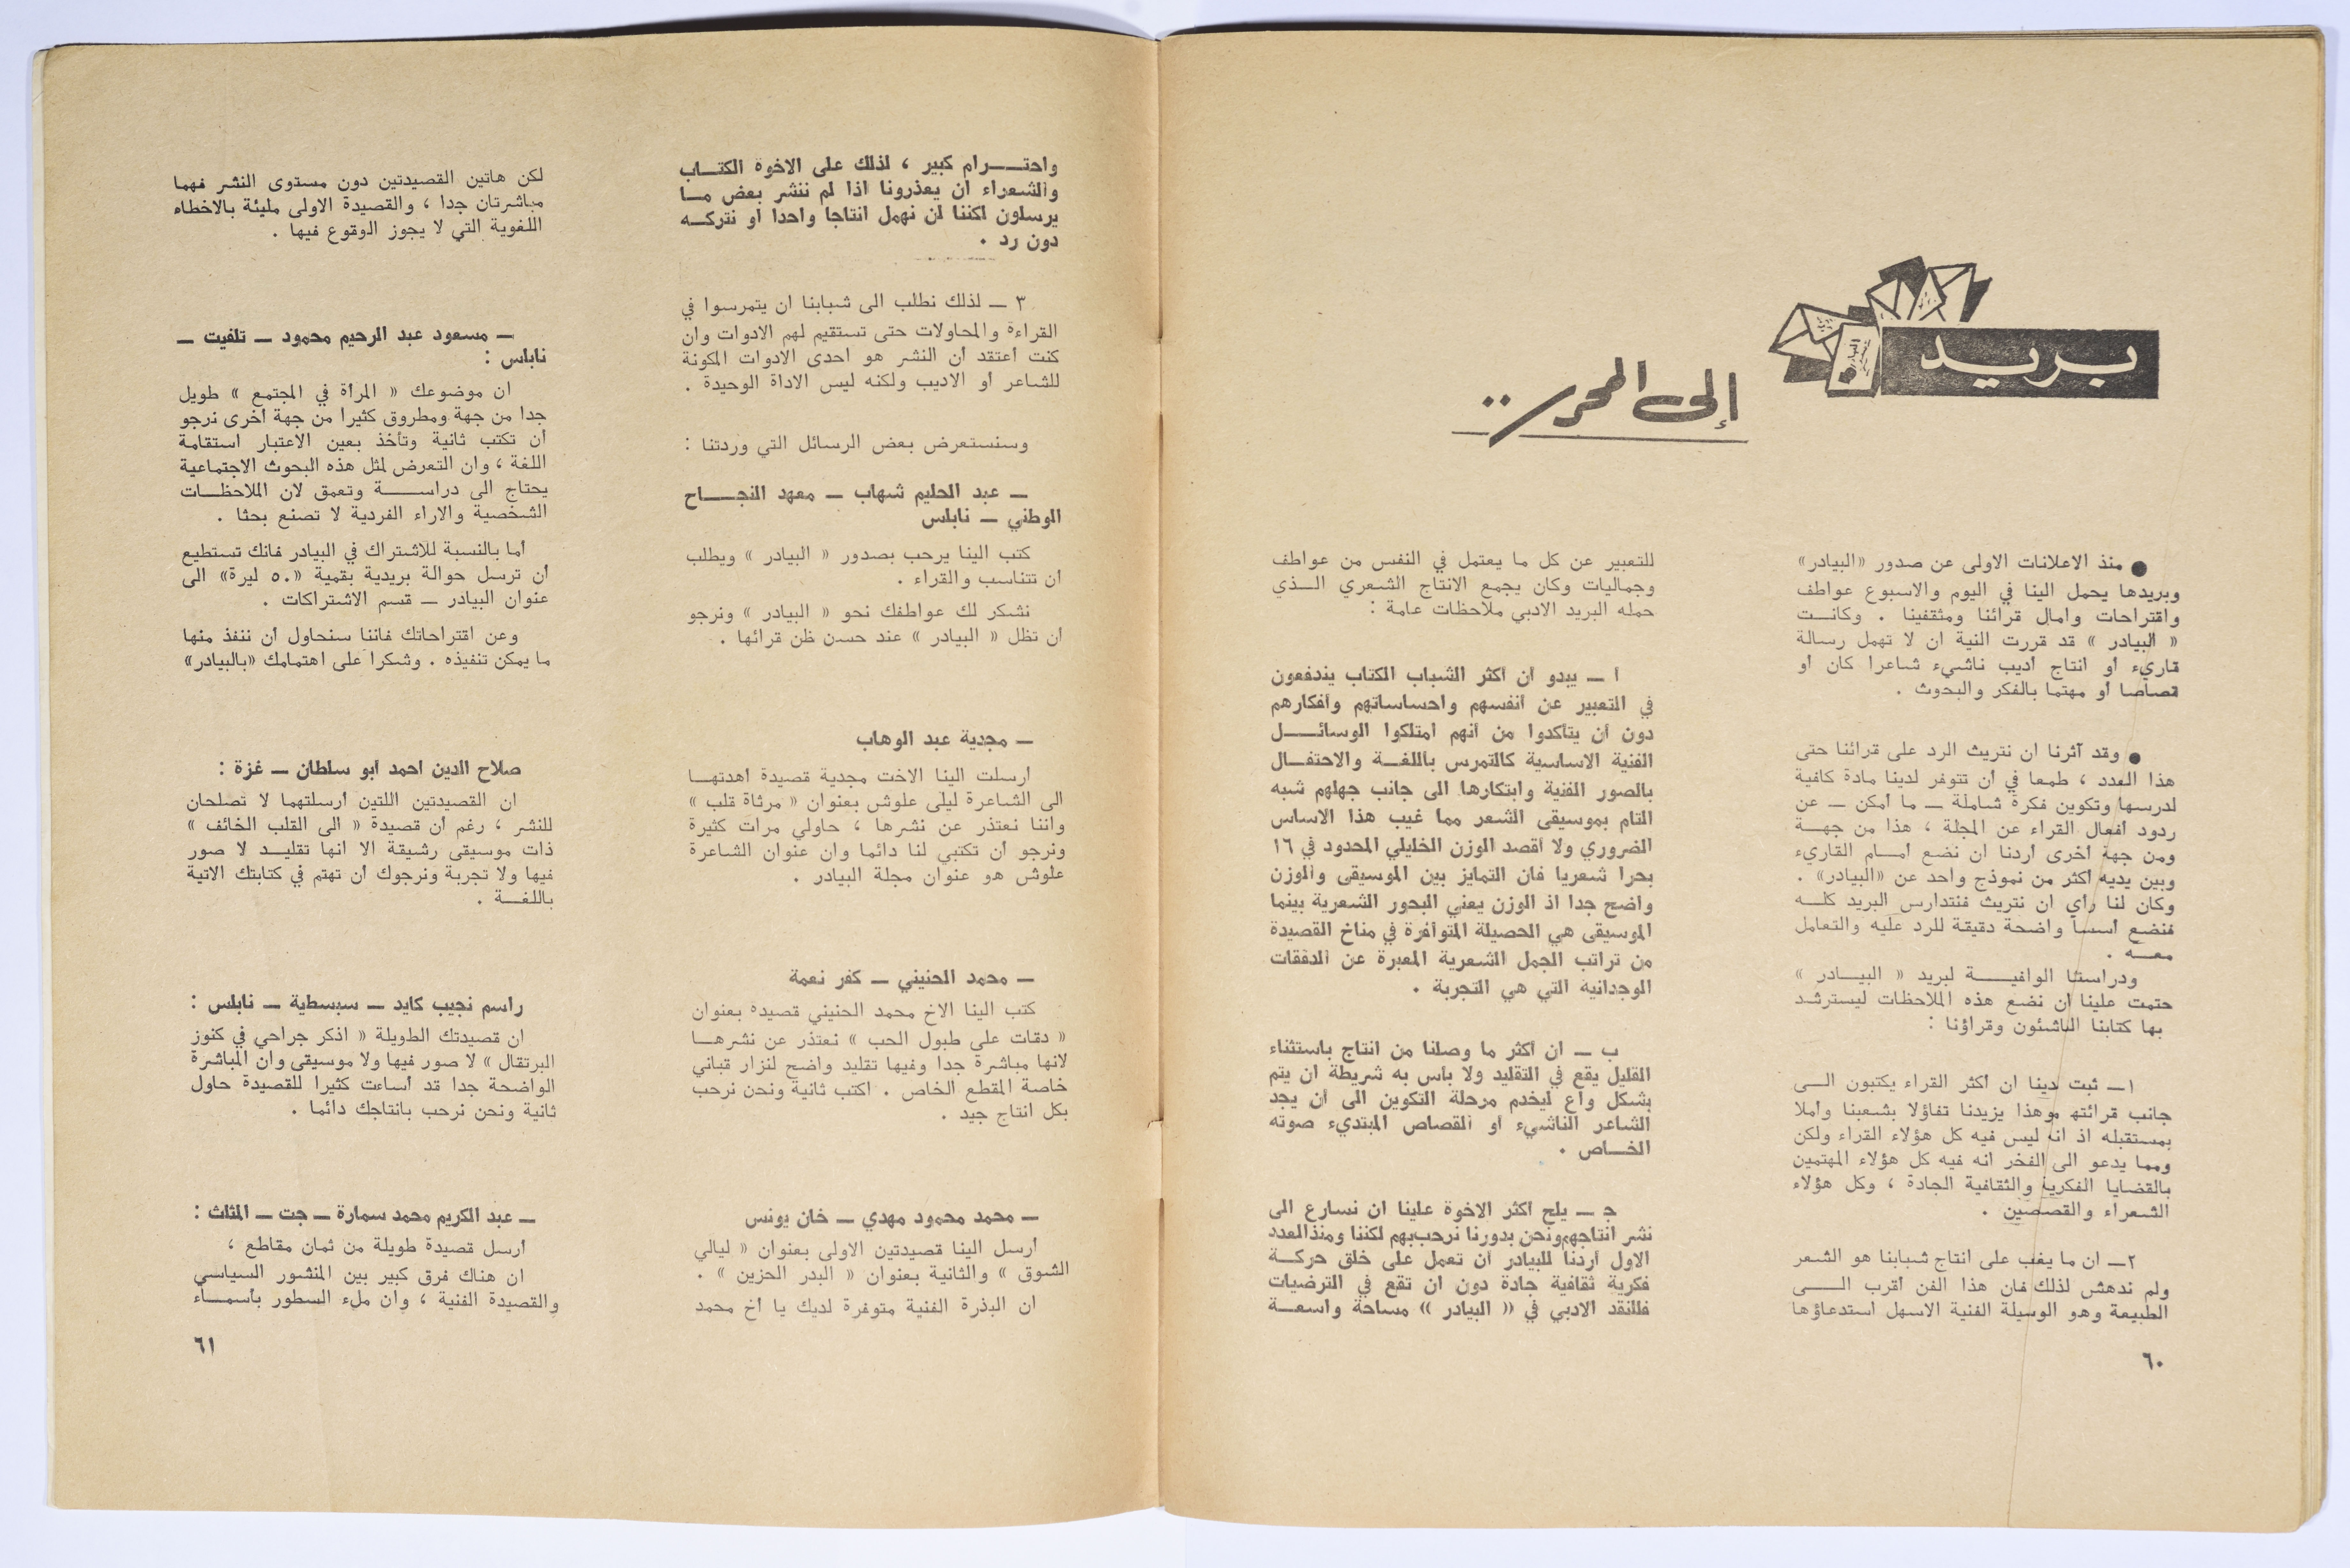 بريد
إلى المحرر ..
● منذ الاعلانات الاولى عن صدور «البيادر»
وبريدها يحمل الينا في اليوم والاسبوع عواطف
واقتراحات وامال قرائنا ومثقفينا . وكانــت
« البيادر » قد قررت النية ان لا تهمل رسالة
قاريء أو انتاج أديب ناشيء شاعرا كان أو
قصاصا أو مهتما بالفكر والبحوث .
● وقد آثرنا ان نتريث الرد على قرائنا حتى
هذا العدد ، طمعا في أن تتوفر لدينا مادة كافية
لدرسها وتكوين فكرة شاملة ــ ما أمكن ــ عن
ردود أفعال القراء عن المجلة ، هذا من جهــة
ومن جهة أخرى أردنا ان نضع أمــام القاريء
وبين يديه أكثر من نموذج واحد عن «البيادر» .
وكان لنا رأي ان نتريث فنتدارس البريد كلــه
فنضع أسسا واضحة دقيقة للرد عليه والتعامل
معــه .
ودراستنا الوافيــــة لبريد « البيــادر »
حتمت علينا أن نضع هذه الملاحظات ليسترشد
بها كتابنا الناشئون وقراؤنا :
١ــ ثبت لدينا ان أكثر القراء يكتبون الــى
جانب قرائتهم وهذا يزيدنا تفاؤلا بشعبنا وأملا
بمستقبله اذ انه ليس فيه كل هؤلاء القراء ولكن
ومما يدعو الى الفخر انه فيه كل هؤلاء المهتمين
بالقضايا الفكرية والثقافية الجادة ، وكل هؤلاء
الشعراء والقصصين .
٢ــ ان ما يغلب على انتاج شبابنا هو الشعر
ولم ندهش لذلك فان هذا الفن أقرب الــــى
الطبيعة وهو الوسيلة الفنية الاسهل استدعاؤها
٦٠
للتعبير عن كل ما يعتمل في النفس من عواطف
وجماليات وكان يجمع الانتاج الشعري الــذي
حمله البريد الادبي ملاحظات عامة :
أ ــ يبدو أن أكثر الشباب الكتاب يندفعون
في التعبير عن أنفسهم واحساساتهم وأفكارهم
دون أن يتأكدوا من أنهم امتلكوا الوسائــــل
الفنية الاساسية كالتمرس باللغــة والاحتفــال
بالصور الفنية وابتكارها الى جانب جهلهم شبه
التام بموسيقى الشعر مما غيب هذا الاساس
الضروري ولا أقصد الوزن الخليلي المحدود في ١٦
بحرا شعريا فان التمايز بين الموسيقى والوزن
واضح جدا اذ الوزن يعني البحور الشعرية بينما
الموسيقى هي الحصيلة المتوافرة في مناخ القصيدة
من تراتب الجمل الشعرية المعبرة عن الدفقات
الوجدانية التي هي التجربة .
ب ــ ان أكثر ما وصلنا من انتاج باستثناء
القليل يقع في التقليد ولا بأس به شريطة ان يتم
بشكل واع ليخدم مرحلة التكوين الى أن يجد
الشاعر الناشيء أو القصاص المبتديء صوته
الخــاص .
جـ ــ يلح أكثر الاخوة علينا ان نسارع الى
نشر انتاجهم ونحن بدورنا نرحب بهم لكننا ومنذ العدد
الاول أردنا للبيادر أن تعمل على خلق حركــة
فكرية ثقافية جادة دون ان تقع في الترضيات
فللنقد الادبي في « البيادر » مساحة واسعــة
واحتــــرام كبير ، لذلك على الاخوة الكتــاب
والشعراء أن يعذرونا اذا لم ننشر بعض مــا
يرسلون لكننا لن نهمل انتاجا واحدا أو نتركــه
دون رد .
٣ ــ لذلك نطلب الى شبابنا ان يتمرسوا في
القراءة والمحاولات حتى تستقيم لهم الادوات وان
كنت أعتقد أن النشر هو احدى الادوات المكونة
للشاعر أو الاديب ولكنه ليس الاداة الوحيدة .
وسنستعرض بعض الرسائل التي وردتنا :
ــ عبد الحليم شهاب ــ معهد النجــــاح
الوطني ــ نابلس
كتب الينا يرحب بصدور « البيادر » ويطلب
ان تتناسب والقراء .
نشكر لك عواطفك نحو « البيادر » ونرجو
ان تظل « البيادر » عند حسن ظن قرائها .
ــ مجدية عبد الوهاب
أرسلت الينا الاخت مجدية قصيدة أهدتهــا
الى الشاعرة ليلى علوش بعنوان « مرثاة قلب »
واننا نعتذر عن نشرها ، حاولي مرات كثيرة
ونرجو أن تكتبي لنا دائما وان عنوان الشاعرة
علوش هو عنوان مجلة البيادر .
ــ محمد الحنيني ــ كفر نعمة
كتب الينا الاخ محمد الحنيني قصيدة بعنوان
« دقات على طبول الحب » نعتذر عن نشرهــا
لانها مباشرة جدا وفيها تقليد واضح لنزار قباني
خاصة المقطع الخاص . اكتب ثانية ونحن نرحب
بكل انتاج جيد .
ــ محمد محمود مهدي ــ خان يونس
أرسل الينا قصيدتين الاولى بعنوان « ليالي
الشوق » والثانية بعنوان « البدر الحزين » .
ان البذرة الفنية متوفرة لديك يا أخ محمد
لكن هاتين القصيدتين دون مستوى النشر فهما
مباشرتان جدا ، والقصيدة الاولى مليئة بالاخطاء
اللغوية التي لا يجوز الوقوع فيها .
ــ مسعود عبد الرحيم محمود ــ تلفيت ــ
نابلس :
ان موضوعك « المرأة في المجتمع » طويل
جدا من جهة ومطروق كثيرا من جهة أخرى نرجو
أن تكتب ثانية وتأخذ بعين الاعتبار استقامة
اللغة ، وان التعرض لمثل هذه البحوث الاجتماعية
يحتاج الى دراســــة وتعمق لان الملاحظــات
الشخصية والاراء الفردية لا تصنع بحثا .
أما بالنسبة للاشتراك في البيادر فانك تستطيع
أن ترسل حوالة بريدية بقمية «٥٠ ليرة» الى
عنوان البيادر ــ قسم الاشتراكات .
وعن اقتراحاتك فاننا سنحاول أن ننفذ منها
ما يمكن تنفيذه . وشكرا على اهتمامك «بالبيادر»
صلاح الدين احمد ابو سلطان ــ غزة :
ان القصيدتين اللتين أرسلتهما لا تصلحان
للنشر ، رغم أن قصيدة « الى القلب الخائف »
ذات موسيقى رشيقة الا انها تقليــد لا صور
فيها ولا تجربة ونرجوك أن تهتم في كتابتك الاتية
باللغــة .
راسم نجيب كايد ــ سبسطية ــ نابلس :
ان قصيدتك الطويلة « اذكر جراحي في كنوز
البرتقال » لا صور فيها ولا موسيقى وان المباشرة
الواضحة جدا قد أساءت كثيرا للقصيدة حاول
ثانية ونحن نرحب بانتاجك دائما .
ــ عبد الكريم محمد سمارة ــ جت ــ المثلث :
أرسل قصيدة طويلة من ثمان مقاطع ،
ان هناك فرق كبير بين المنشور السياسي
والقصيدة الفنية ، وان ملء السطور بأسمــاء
٦١